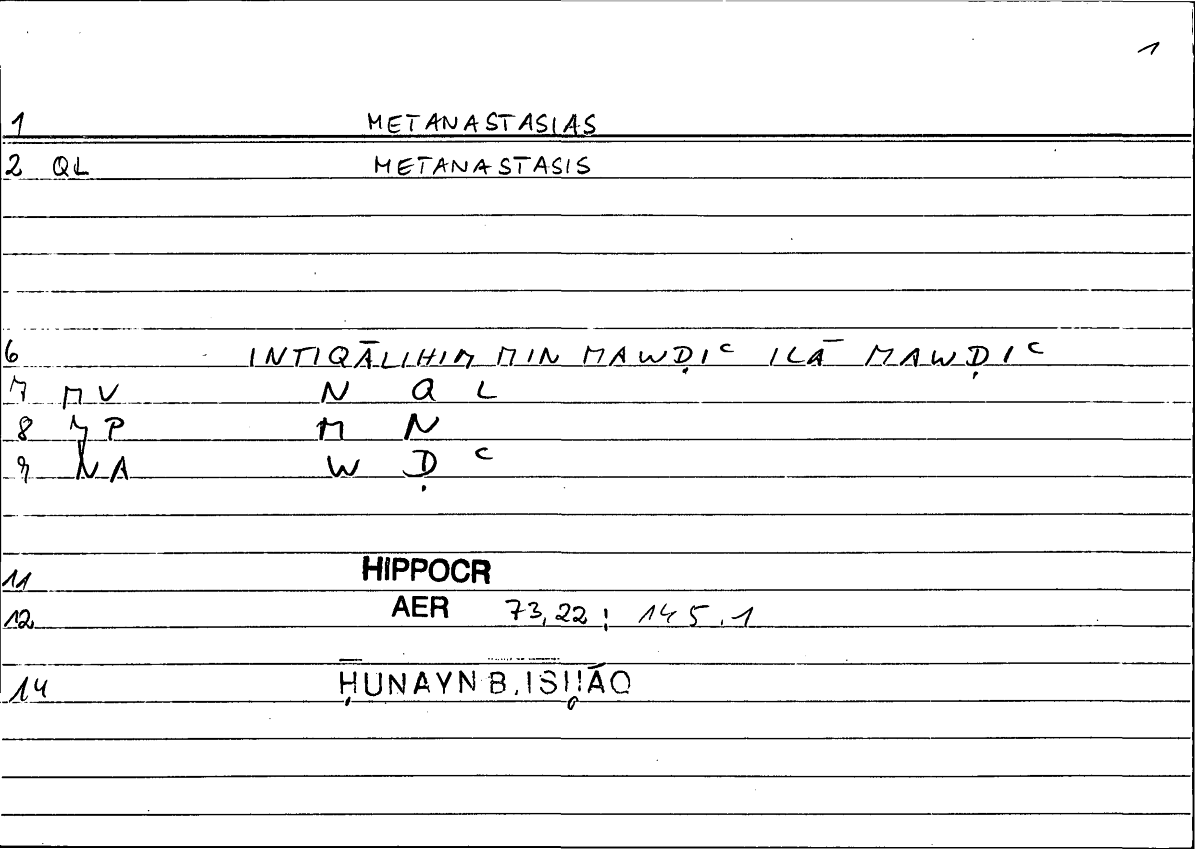 1
1 METANASTASIAS
2 QL METANASTASIS
6 INTIQĀLIHIM MIN MAWḌIᶜ ILĀ MAWḌIᶜ
7 MV N Q L
8 MP M N
9 NA W Ḍ ᶜ
11 HIPPOCR
12 AER 73,22; 145.1
14 ḤUNAYN B. ISḤĀQ